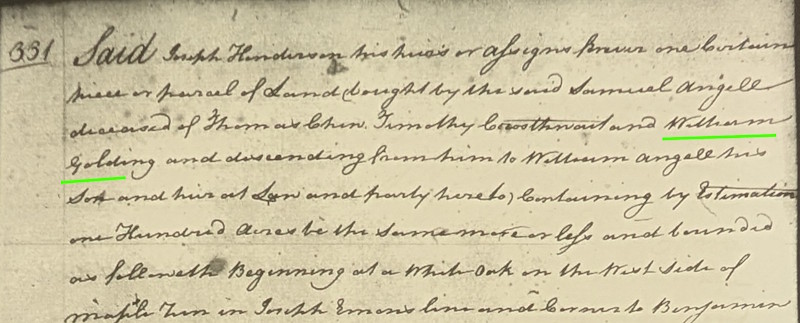 331 Said Joseph Henderson his heirs or assigns forever one Certain
piece or parcel of Land (bought by the said Samuel Angell
deceased of Thomas Chew. Timothy Crosthwait and William
Golding and descending from him to William Angell his
Son and heir at Law and party hereto) Containing by Estimation
one Hundred Acres be the same more or less and bounded
as followeth Beginning at a White Oak on the West Side of
Run in Joseph Emons line and Corner to Benjamin